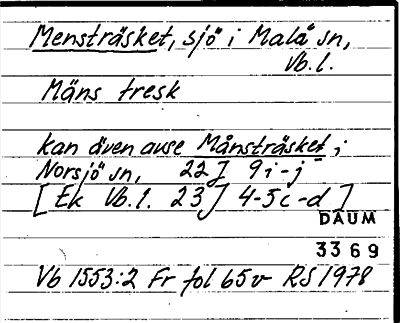 Mensträsket, sjö i Malå sn,
Vb.l.
Mäns tresk
kan även avse Månsträsket i
Norsjö sn, 22J 9i-j
[Ek Vb.l. 23J 4-5c-d]
DAUM
3369
Vb 1553:2 Fr fol 65v RS 1978